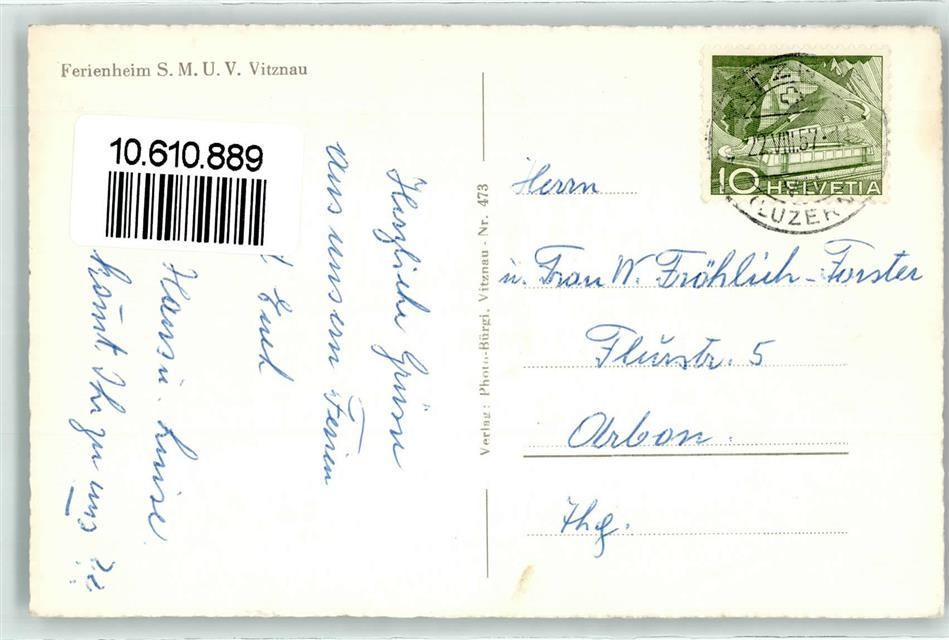 Ferienheim S. M. U. V. Vitznau
10.610.889
Herzliche Grüsse
aus unsern Ferien
Hansu. Luise
kommt Ihr zu uns??
Verlag: Photo-Bürgi, Vitznau - Nr. 473
22.VIII.57
(LUZERN)
10 HELVETIA
Herrn
u. Frau W. Fröhlich-Forster
Flurstr. 5
Arbon.
Thg.